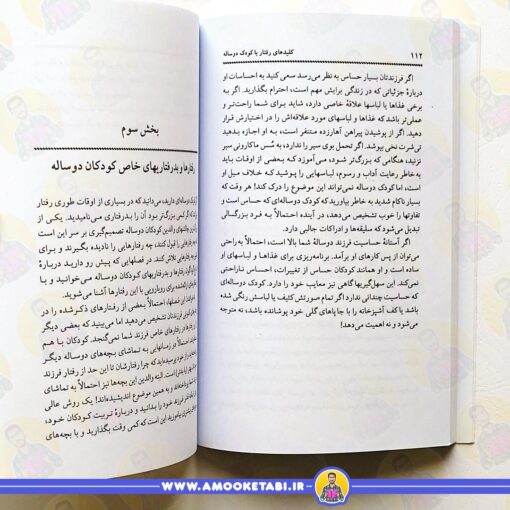 ۱۱۲
کلیدهای رفتار با کودک دوساله
اگر فرزندتان بسیار حساس به نظر می‌رسد سعی کنید به احساسات او
دربارهٔ جزئیاتی که در زندگی برایش مهم است، احترام بگذارید. اگر به
برخی غذاها یا لباسها علاقهٔ خاصی دارد، شاید برای شما راحت‌تر و
عملی‌تر باشد که غذاها و لباسهای مورد علاقه‌اش را در اختیارش قرار
دهید. اگر از پوشیدن پیراهن آهارزده متنفر است، به او اجازه بدهید
تی‌شرت نخی بپوشد. اگر تحمل بوی سیر را ندارد، به سُس ماکارونی سیر
نزنید، هنگامی که بزرگ‌تر شود، می‌آموزد که بعضی از اوقات باید
به خاطر رعایت آداب و رسوم، لباسهایی را پوشید که خلاف میل او
است، اما کودک دوساله نمی‌تواند این موضوع را درک کند! هر وقت که
بسیار ناکام شدید به خاطر بیاورید که کودک دوساله‌ای که حساس است و
تفاوتها را خوب تشخیص می‌دهد، در آینده احتمالاً به فرد بزرگسالی
تبدیل می‌شود که سلیقه‌ها و ادراکات جالبی دارد.
اگر آستانهٔ حساسیت فرزند دوسالهٔ شما بالا است، احتمالاً به راحتی
می‌توان از پس کارهای او برآمد. برنامه‌ریزی برای غذاها و لباسهای او
ساده است و او همانند کودکان حساس از تغییرات، احساس ناراحتی
نمی‌کند. این سهل‌گیریها گاهی نیز معایب خود را دارد. کودک دوساله‌ای
که حساسیت چندانی ندارد اگر تمام صورتش کثیف یا لباسش رنگی شده
باشد یا کف آشپزخانه را با جاپاهای گلی خود پوشانده باشد، نه متوجه
می‌شود و نه اهمیت می‌دهد!
بخش سوم
رفتارها و بدرفتاریهای خاص کودکان دوساله
کودک دوساله‌ای دارید، می‌دانید که در بسیاری از اوقات طوری رفتار
که اگر کمی بزرگ‌تر بود آن را بدرفتاری می‌نامیدید. یکی از
چالشهای والدین کودکان دوساله تصمیم‌گیری بر سر این است
را قبول کنند، چه رفتارهایی را نادیده بگیرند و برای
رفتارهایی تلاش کنند. در فصلهایی که پیش رو دارید دربارهٔ
رفتارها و بدرفتاریهای کودکان دوساله می‌خوانید و با
برای رویارویی با این رفتارها آشنا می‌شوید.
این فصلها، احتمالاً بعضی از رفتارهای ذکرشده را در
خود تشخیص می‌دهید اما می‌بینید که بعضی دیگر
رفتارهای خاص فرزند شما نمی‌گنجد. کودکان با هم
احتمالاً در زمانهایی به تماشای بچه‌های دوساله دیگر
از خود پرسیده‌اید که چرا رفتارشان تا این حد از رفتار فرزند
است. البته والدین این بچه‌ها نیز احتمالاً به تماشای
و به همین موضوع اندیشیده‌اند! یک روش عالی
فرزند خود را بدانید و دربارهٔ تربیت کودکان خود،
بیاموزید این است که کمی وقت بگذارید و با بچه‌های
WWW.AMOOKETABI.IR